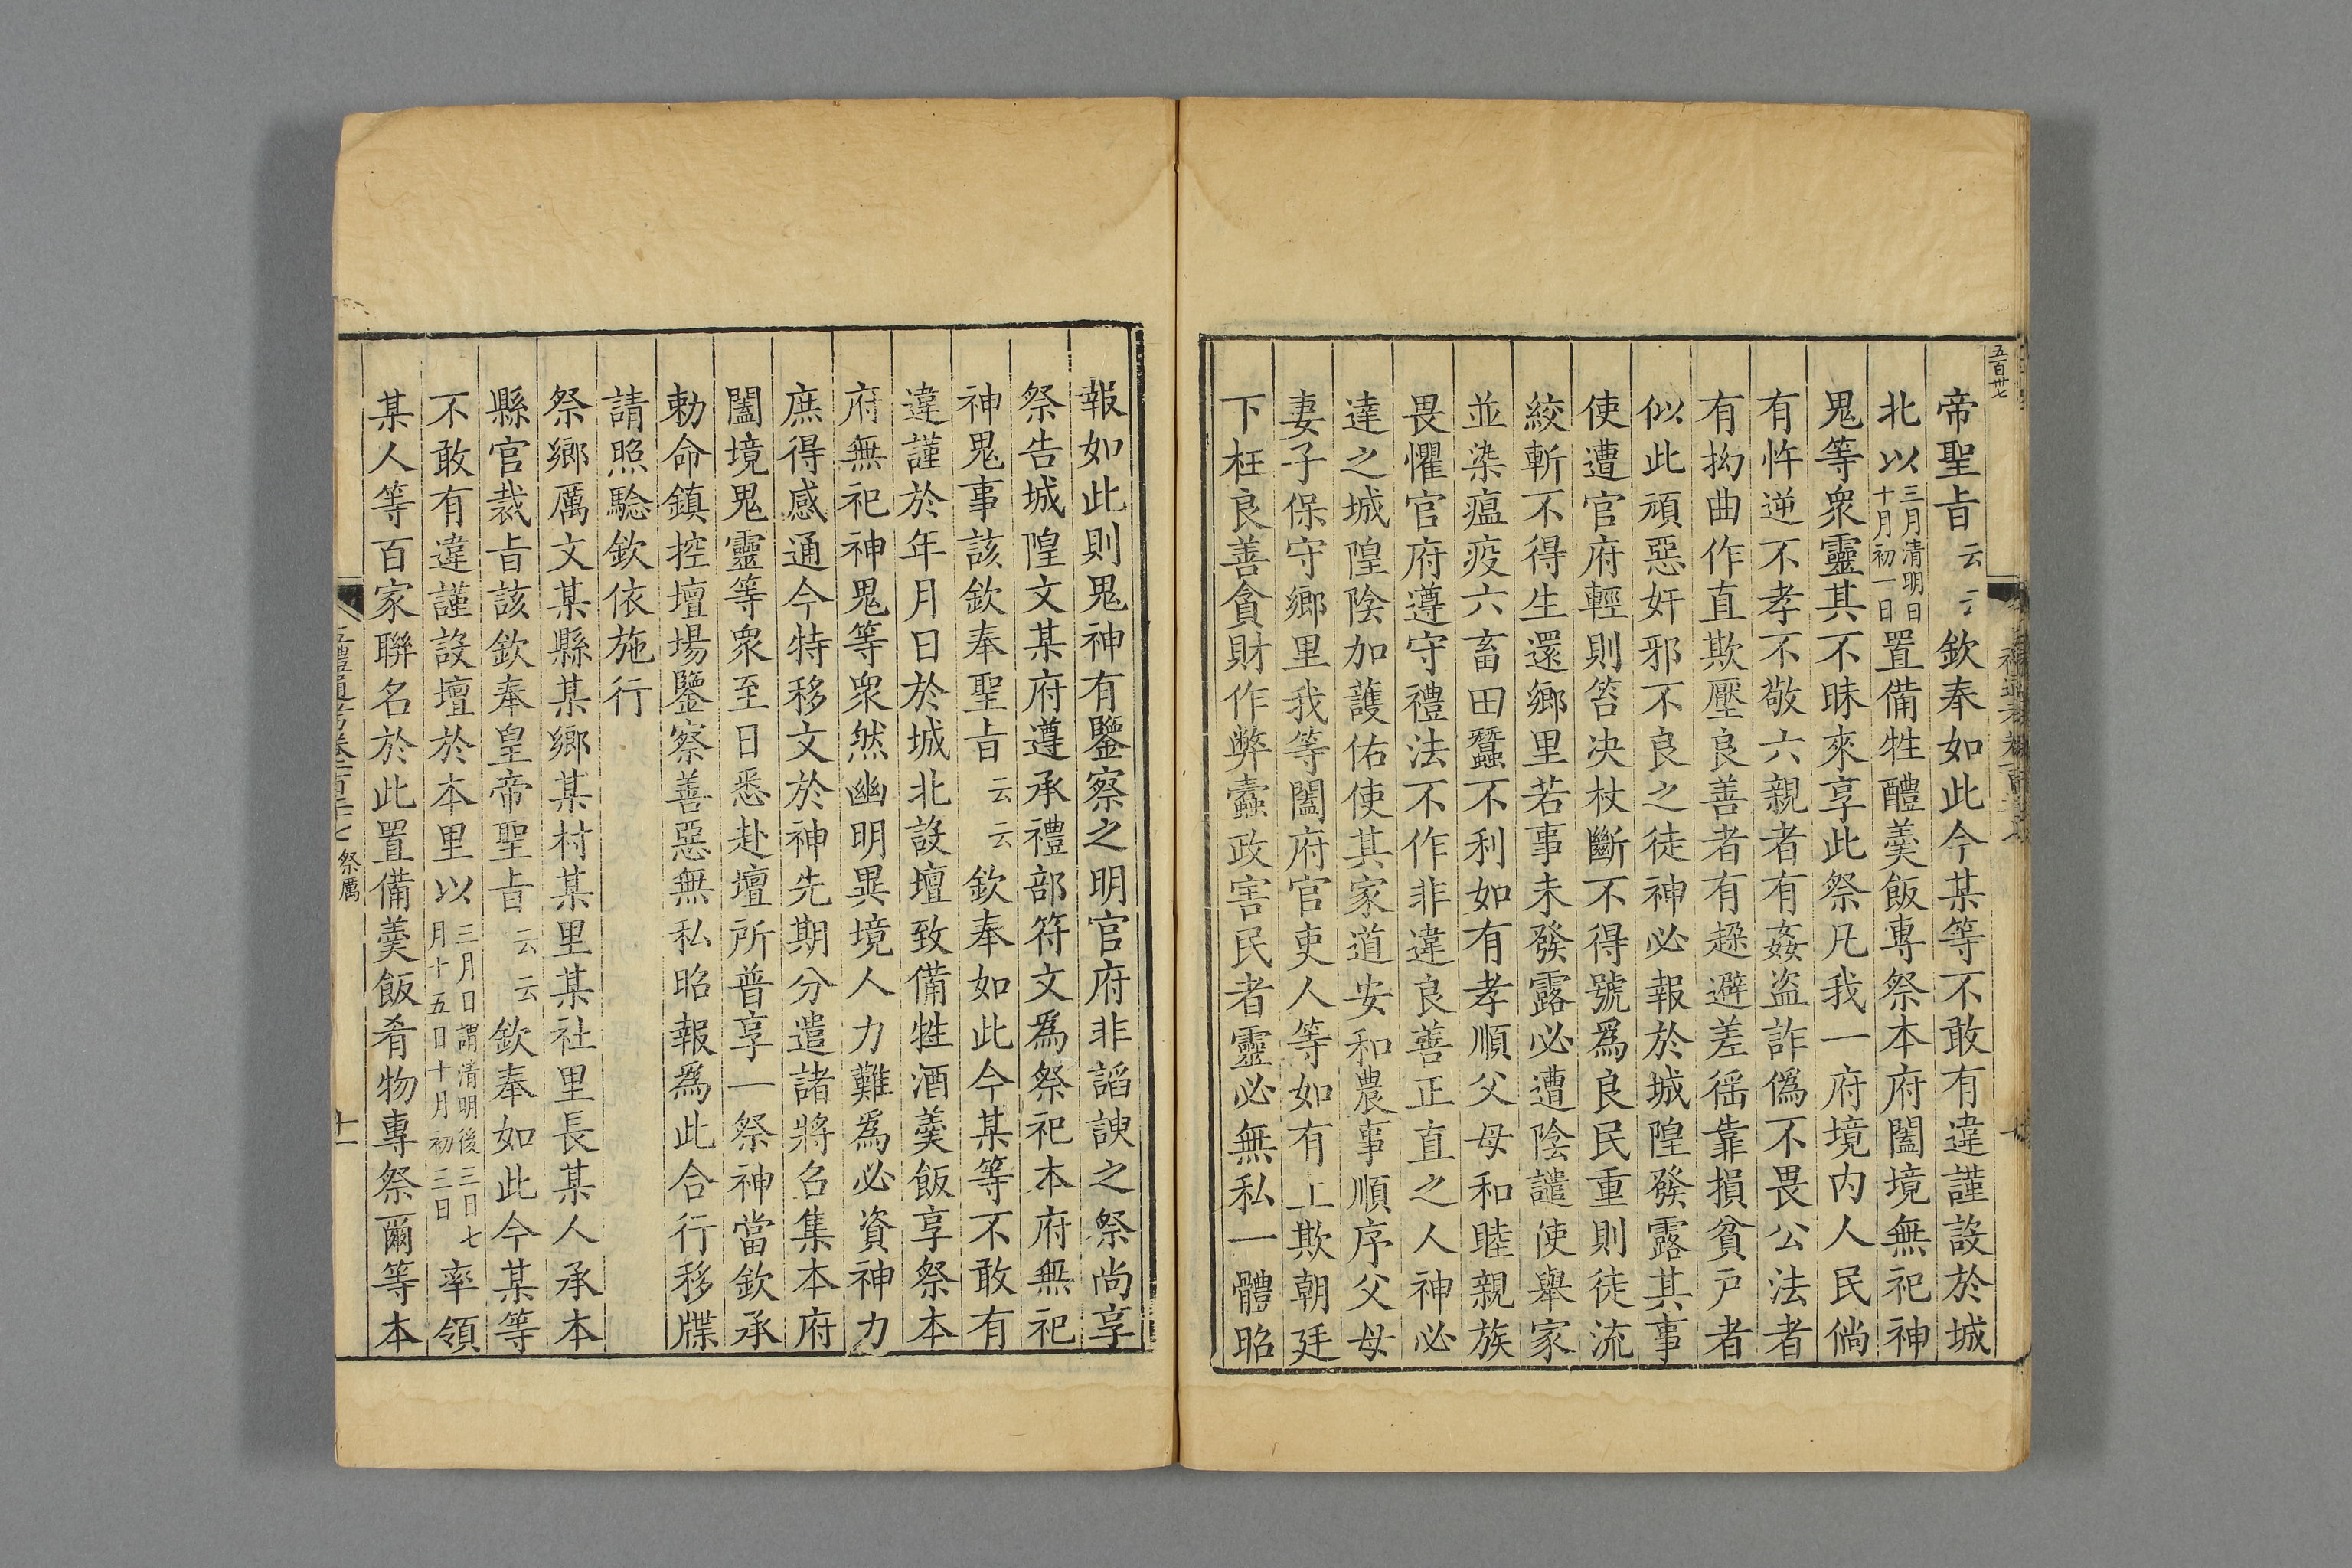 五百卅七
帝聖旨云云欽奉如此今某等不敢有違謹設於城
北以三月清明日十月初一日置備牲醴羹飯專祭本府闔境無祀神
鬼等衆靈其不昧來享此祭凡我一府境内人民倘
有忤逆不孝不敬六親者有姦盗詐僞不畏公法者
有拗曲作直欺壓良善者有趨避差徭靠損貧戸者
似此頑惡奸邪不良之徒神必報於城隍發露其事
使遭官府輕則笞决杖斷不得號爲良民重則徒流
絞斬不得生還鄉里若事未發露必遭陰譴使舉家
並染瘟疫六畜田蠶不利如有孝順父母和睦親族
畏懼官府遵守禮法不作非違良善正直之人神必
達之城隍陰加護佑使其家道安和農事順序父母
妻子保守鄉里我等闔府官吏人等如有上欺朝廷
下枉良善貪財作弊蠹政害民者靈必無私一體昭
報如此則鬼神有鑒察之明官府非諂諛之祭尚享
祭告城隍文某府遵承禮部符文爲祭祀本府無祀
神鬼事該欽奉聖旨云云欽奉如此今某等不敢有
違謹於年月日於城北設壇致備牲酒羹飯享祭本
府無祀神鬼等衆然幽明異境人力難爲必資神力
庶得感通今特移文於神先期分遣諸將召集本府
闔境鬼靈等衆至日悉赴壇所普享一祭神當欽承
勅命鎮控壇場鑒察善惡無私昭報爲此合行移牒
請照騐欽依施行
祭鄉厲文某縣某鄉某村某里某社里長某人承本
縣官裁旨該欽奉皇帝聖旨云云欽奉如此今某等
不敢有違謹設壇於本里以三月日謂清明後三日七月十五日十月初三日率領
某人等百家聯名於此置備羹飯肴物專祭爾等本
祭厲
十一